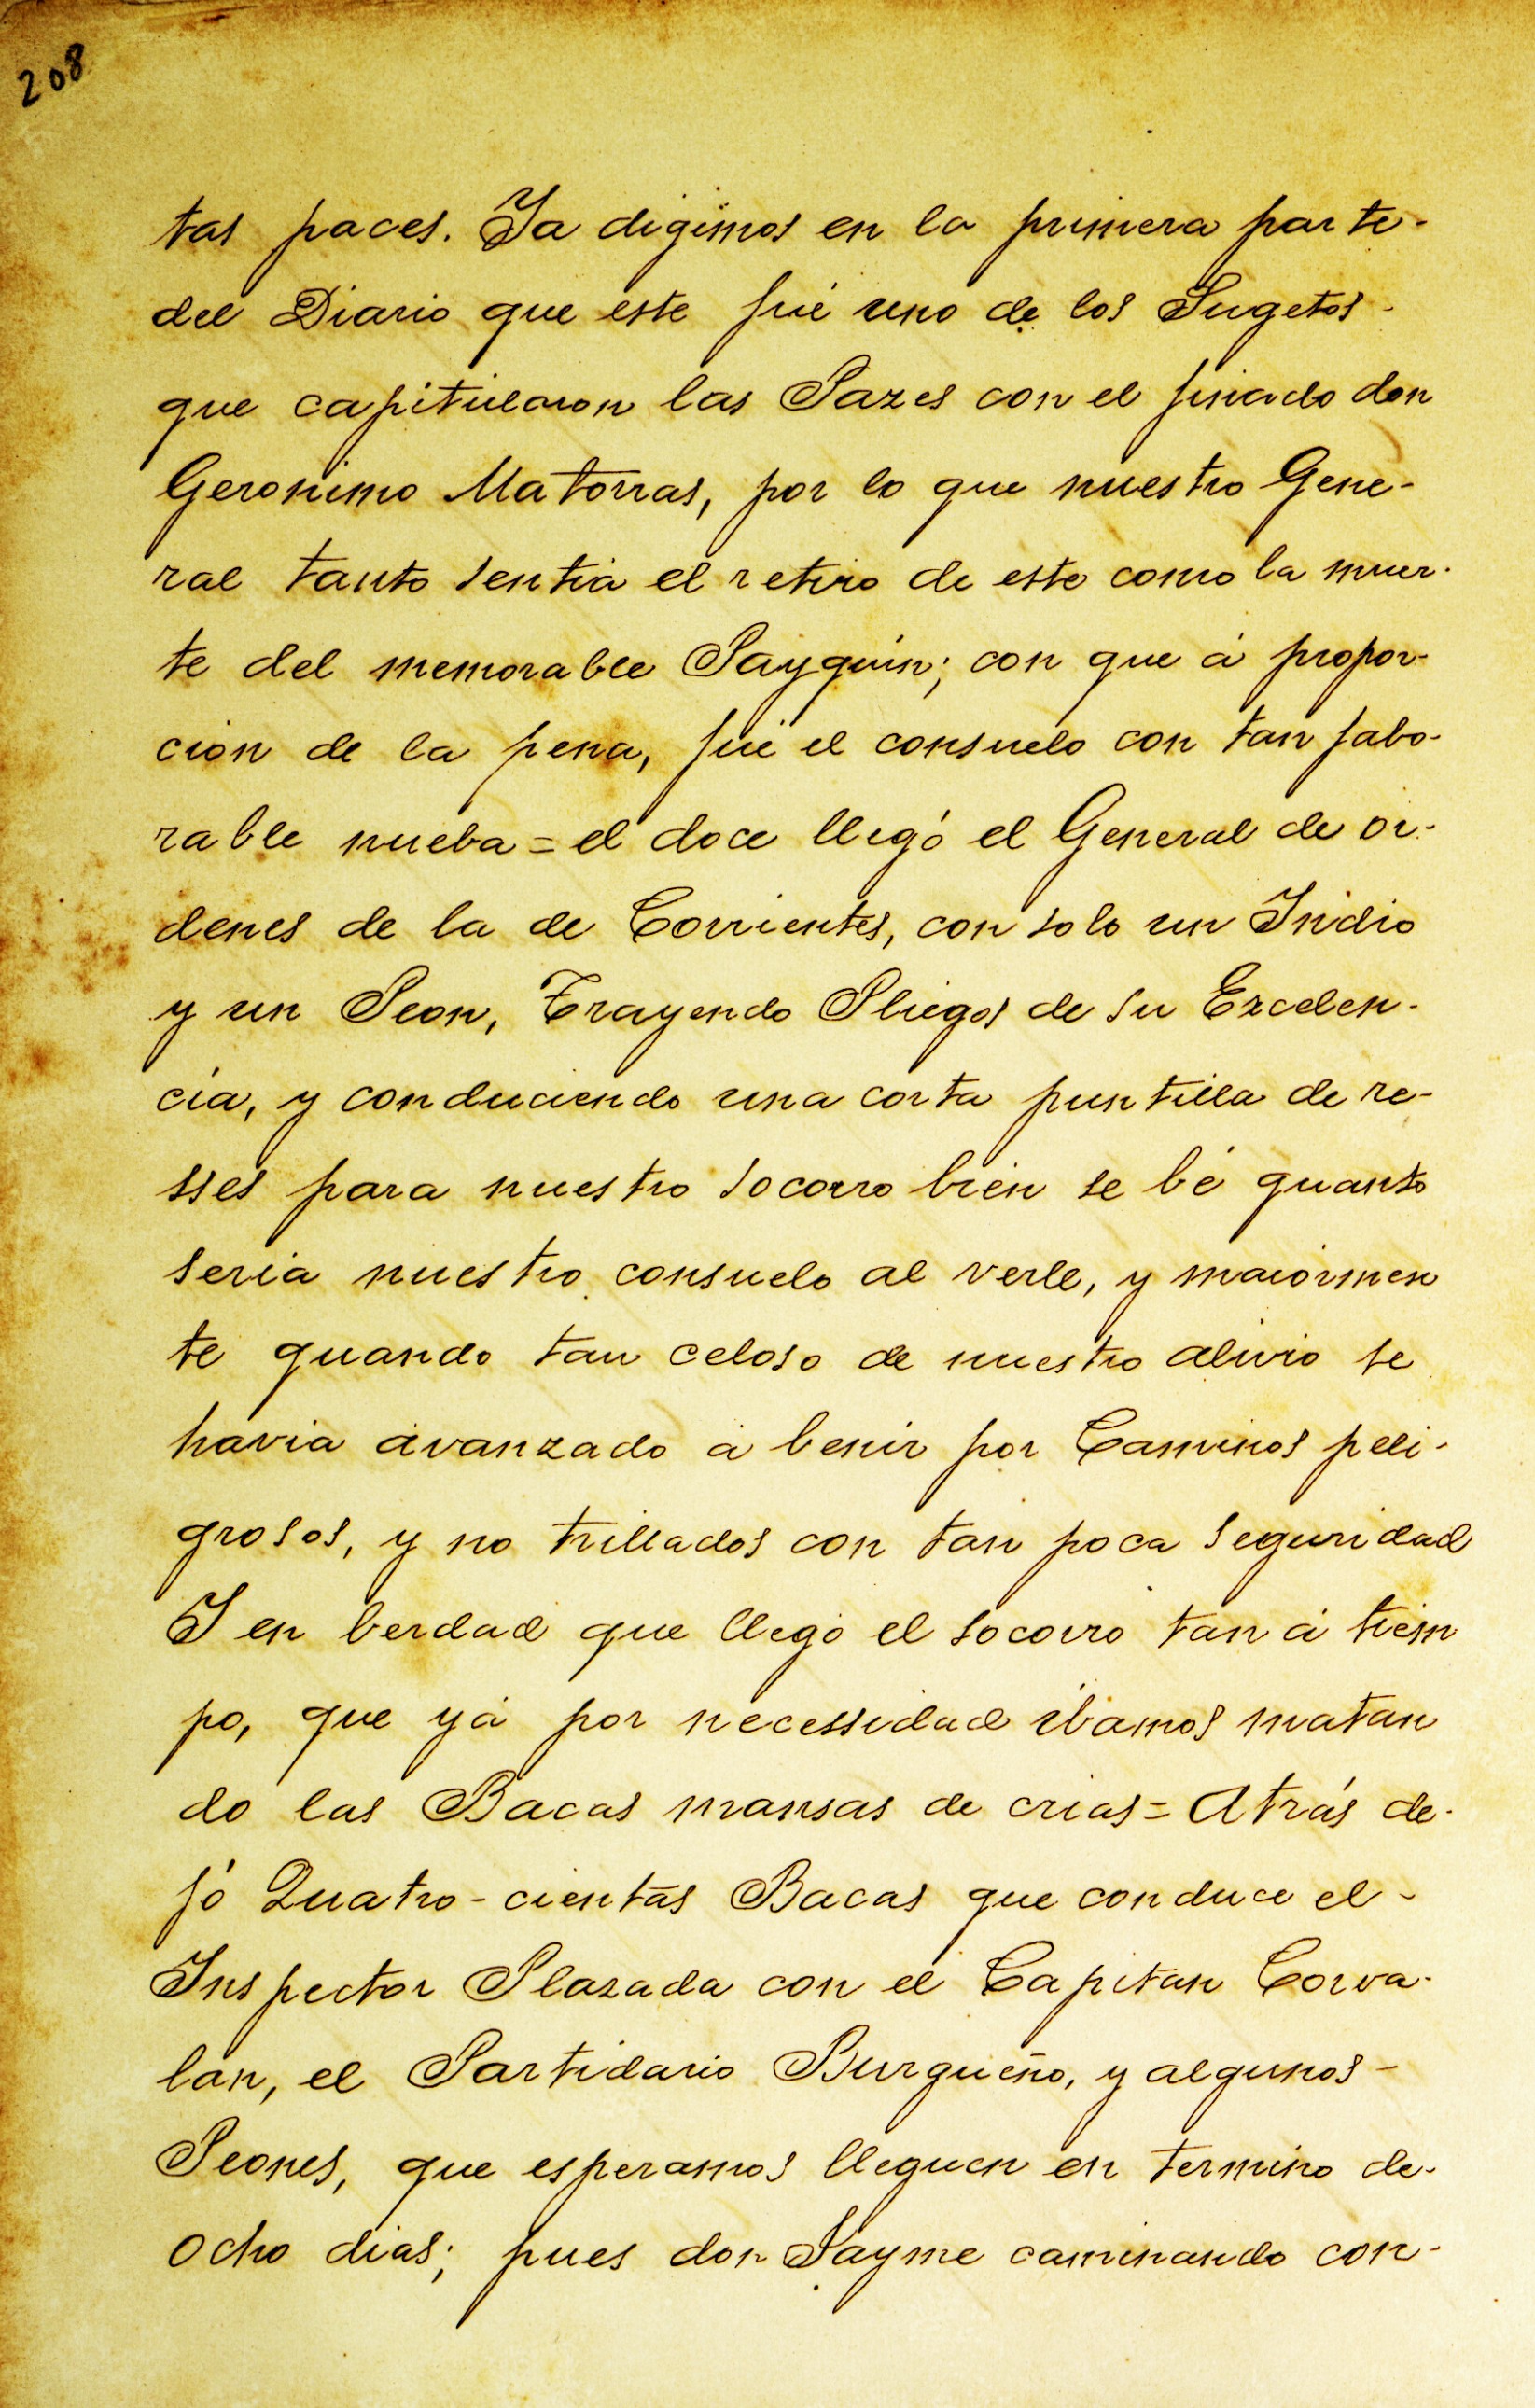 208
tas paces. Ya digimos en la primera parte-
del Diario que este fué uno de los Sugetos-
que capitularon las Pazes con el finado don
Geronimo Matorras, por lo que nuestro Gene-
ral tanto sentia el retiro de este como la muer-
te del memorable Payquin; con que á propor-
cion de la pena, fué el consuelo con tan fabo-
rable nueba = el doce llegó el General de or-
denes de la de Corrientes, con solo un Indio
y un Peon, Trayendo Pliegos de su Excelen-
cia, y conduciendo una corta puntilla de re-
sses para nuestro socorro bien se bé quanto
seria nuestro consuelo al verle, y maiormen
te quando tan celoso de nuestro alivio se
havia avanzado á benir por Caminos peli-
grosos, y no trillados con tan poca seguridad
Y en berdad que llegó el socorro tan á tiem
po, que yá por necessidad ibamos matan
do las Bacas mansas de crias = Atrás de-
jó Quatro-cientas Bacas que conduce el-
Inspector Plazada con el Capitan Corva-
lan, el Partidario Burgueño, y algunos-
Peones, que esperamos lleguen en termino de-
ocho dias; pues don Jayme caminando con-